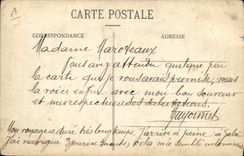 A
CARTE POSTALE
CORRESPONDANCE
ADRESSE
Madame Maroteaux
Vous avez attendu quelque peu
la carte que je vous avais promise, mais
la voici enfin avec mon bon souvenir
et mes respectueuses salutations
Mon voyage a duré très longtemps, j'arrive à peine à
J'ai navigué jours et nuits, cela m'a semblé